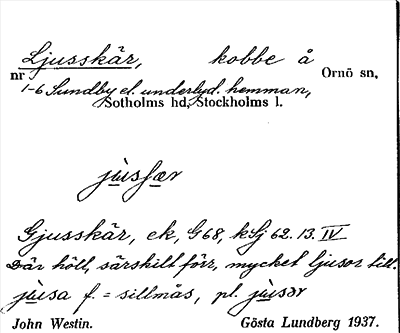 Ljusskär, kobbe å Ornö sn,
nr 1-6 Sundby el. underlyd. hemman,
Sotholms hd, Stockholms l.
jùsʃær
Gjusskär, ek, G68, kSj 62.13.IV
Där höll, särskilt förr, mycket ljusor till.
jùsa f. = sillmås, pl. jùsər
John Westin. Gösta Lundberg 1937.